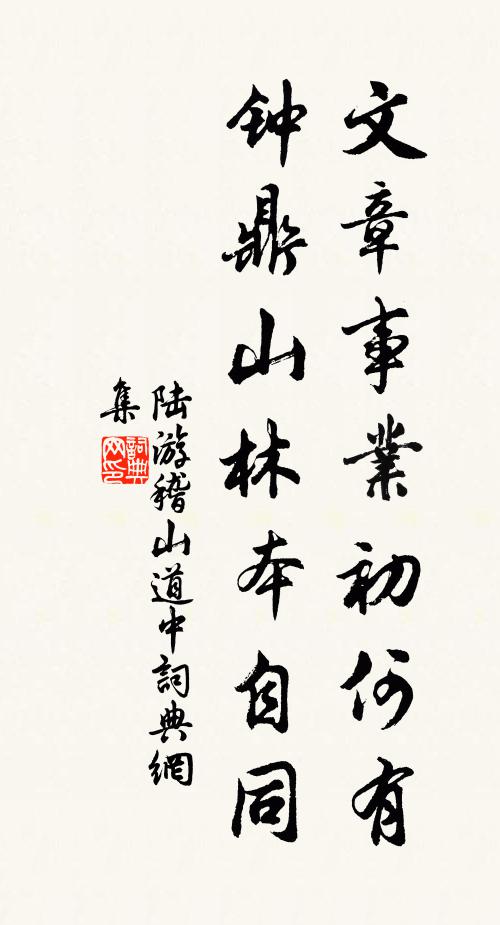 文章事業初何有
钟鼎山林本自同
陆游稽山道中詞典網
集
詞典
网印